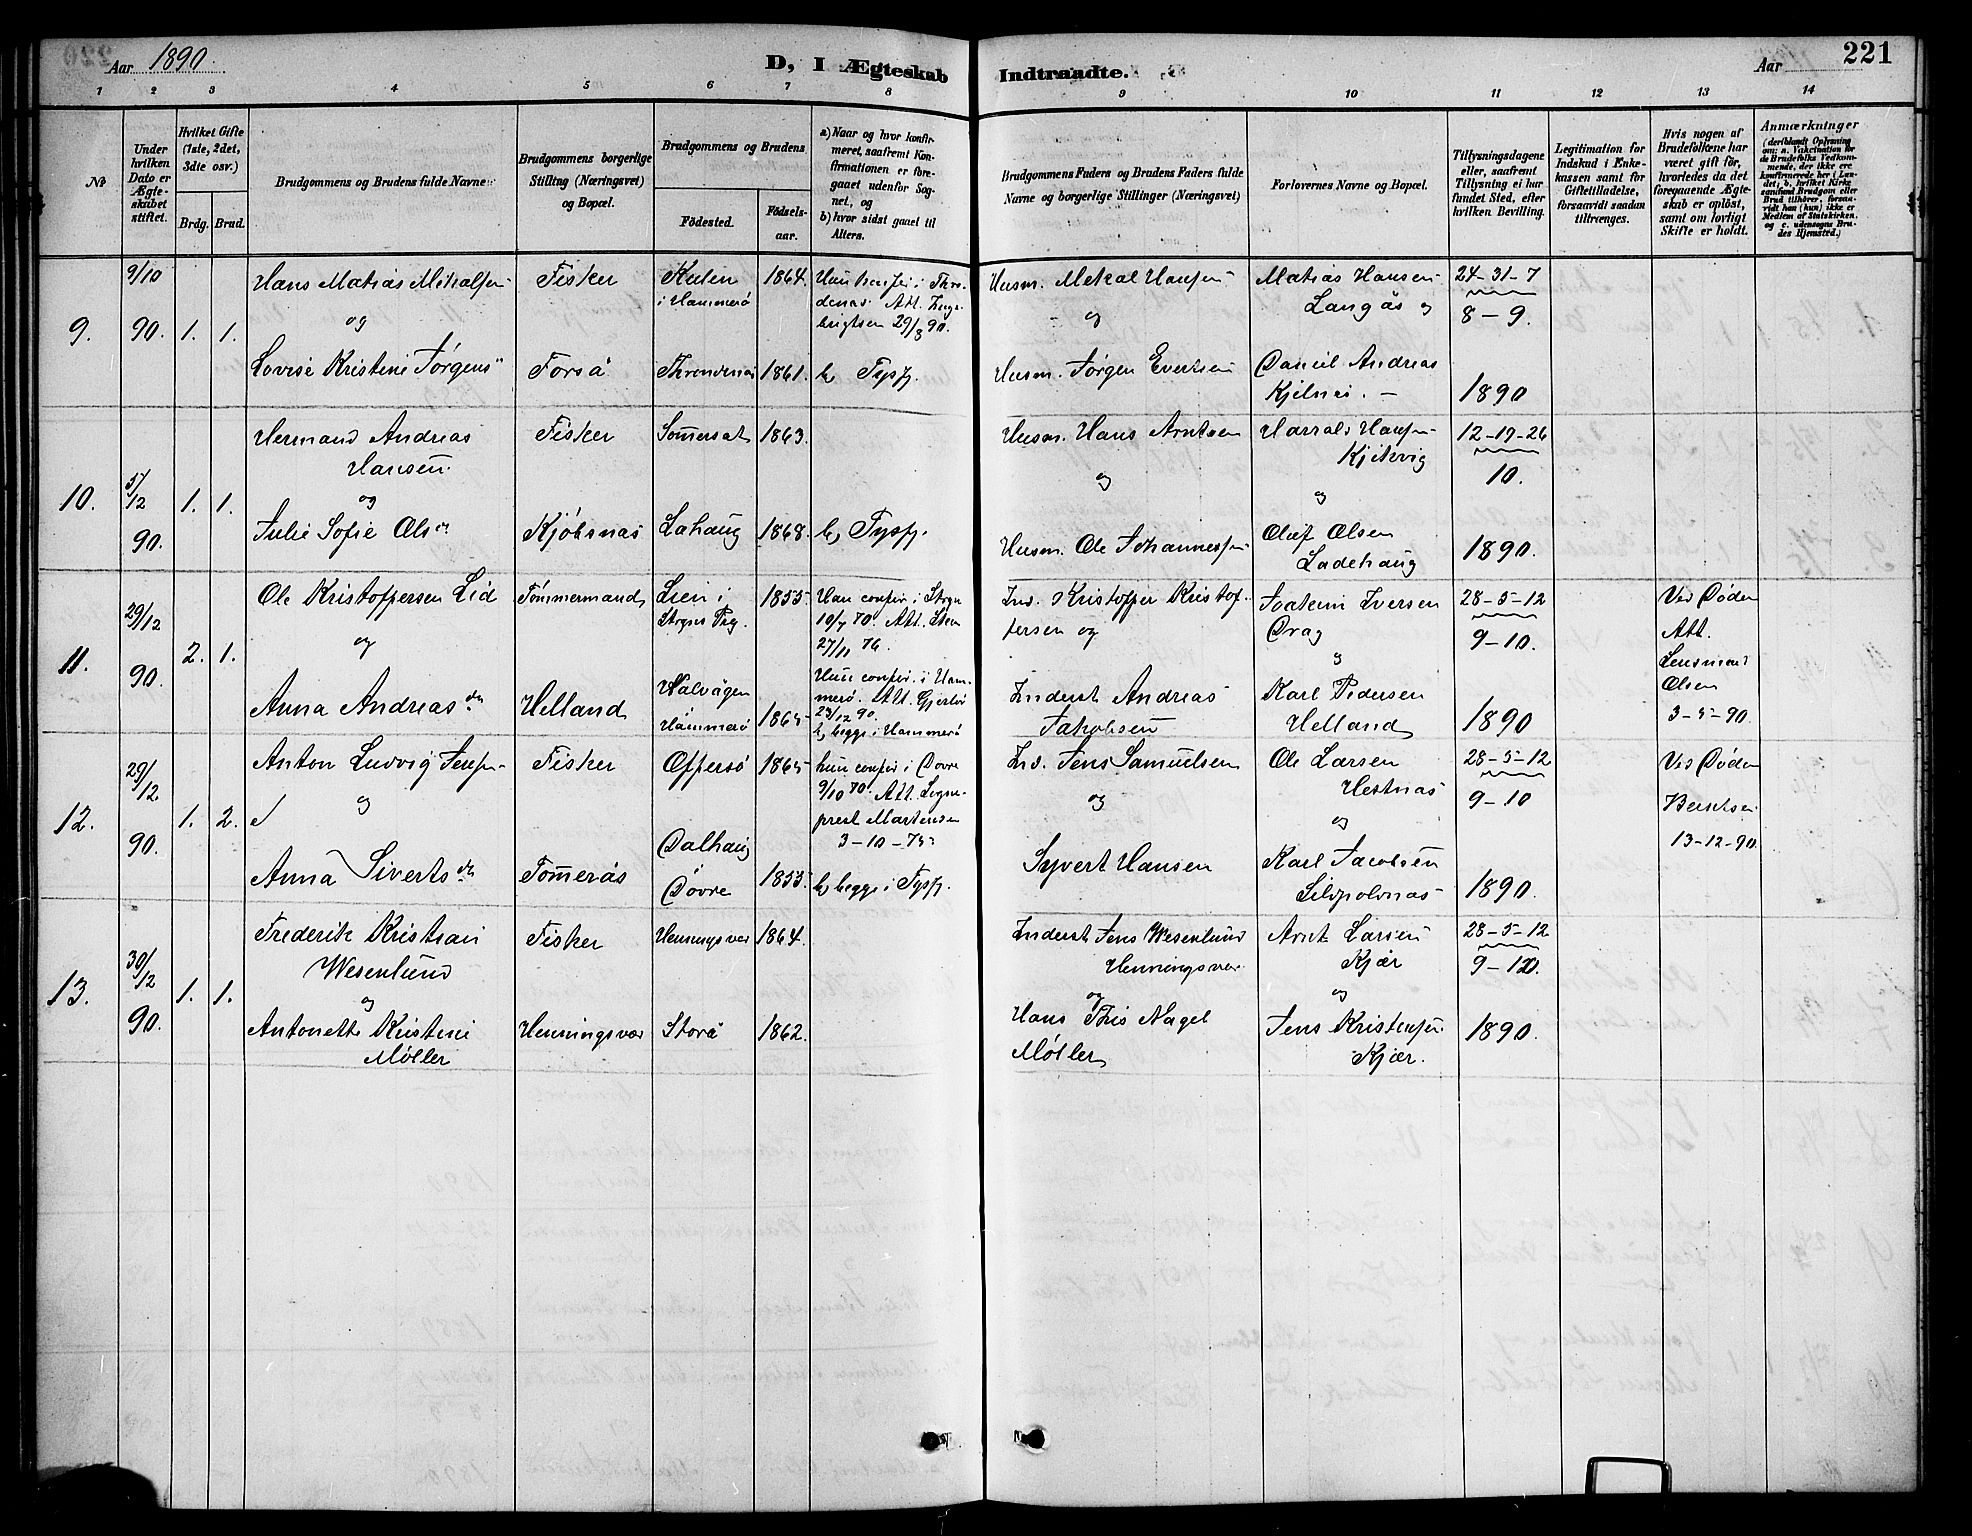 Aar 1890.
D, I Ægteskab Indtraadte.
Aar
221
1 2 3 4 5 6 7 8 9 10 11 12 13 14
No
Under hvilken Dato er Ægteskabet stiftet.
Hvilket Gifte (1ste, 2det, 3die osv.)
Brdg. Brud.
Brudgommens og Brudens fulde Navne
Brudgommens borgerlige Stilling (Næringsvei) og Bopæl.
Brudgommens og Brudens
Födested.
Födselsaar.
a) Naar og hvor konfirmeret, saafremt Konfirmationen er foregaaet udenfor Sognet, og
b) hvor sidst gaaet til Alters.
Brudgommens Faders og Brudens Faders fulde Navne og borgerlige Stillinger (Næringsvei)
Forlovernes Navne og Bopæl.
Tillysningsdagene eller, saafremt Tillysning ei har fundet Sted, efter hvilken Bevilling.
Legitimation for Indskud i Enkekassen samt for Giftetilladelse, forsaavidt saadan tiltrænges.
Hvis nogen af Brudefolkene har været gift för, hvorledes da det foregaaende Ægteskab er oplöst, samt om lovligt Skifte er holdt.
Anmærkninger
(deriblandt Oplysning om: a. Vaccination for de Brudefolks Vedkommende, der ikke ere konfirmerede her i Landet; b. hvilket Kirkesamfund Brudgom eller Brud tilhörer, forsaavidt han (hun) ikke er Medlem af Statskirken, og c. udensogns Brudes Hjemsted.)
9.
9/10
90.
1. 1.
Hans Matias Mikalsen
og
Lovise Kristine Jørgens
Fisker
Forså
i Hammerö
Throndenas
1864.
1861.
Husm. Mekal Hansen
og
Husm. Jørgen Evertsen
Matias Hansen
Langås og
Daniel Andreas
24-31-7
8-9.
1890
10.
5/12
90.
1. 1.
Hermand Andreas
Hansen
og
Julie Sofie Ols dr
Fisker
Kjöbsnas
Somersat
Lahaug
1863.
1868.
b, Tysfj.
Husm. Hans Arntsen
og
Husm. Ole Johannessen
Harrald Hansen
Kjekvig
og
Oluf Olsen
Ladehaug
12-19-26
10.
1890.
11.
29/12
90.
2. 1.
Ole Kristoffersen Lid
og
Anna Andreas dr
Tömmermand
Helland
Lien i
Hammerö
1855
1865
Han confir. i
27/11 76.
Hun confir. i Hammerö. Att.
23/12 90.
b, begge i Hammerö
Ind. Kristoffer Kristoffersen og
Inderst Andreas
Jakobsen
Joakim Iversen
Drag
og
Karl Pedersen
Helland
28-5-12
9-10.
1890
Ved Döden
Att.
Lensmand
Olsen
3-5-90.
12.
29/12
90.
1. 2.
Anton Ludvig Jensen
og
Anna Siverts dr
Fisker
Tömmerås
Offersö
Dalhaug
Dovre
1865
1853.
hun confir i Dovre
9/10 70. Att. Sogneprest Martensen
3-10-75
b, begge i Tysfj.
Ind. Jens Samuelsen
og
Syvert Hansen
Ole Larsen
Hestnas
og
Karl Jacobsen
28-5-12
9-10
1890.
Ved Döden
13-12-90
13.
30/12
90.
1. 1.
Frederik Kristian
Wesenlund
og
Antonette Kristine
Møller
Fisker
Henningsvær
Henningsvær
Storå
1864.
1862.
Inderst Jens Wesenlund
Henningsvær
og
Hans Nagel
Møller
Arnt Larsen
Kjær
og
Jens Kristensen
Kjær.
28-5-12
9-10.
1890.